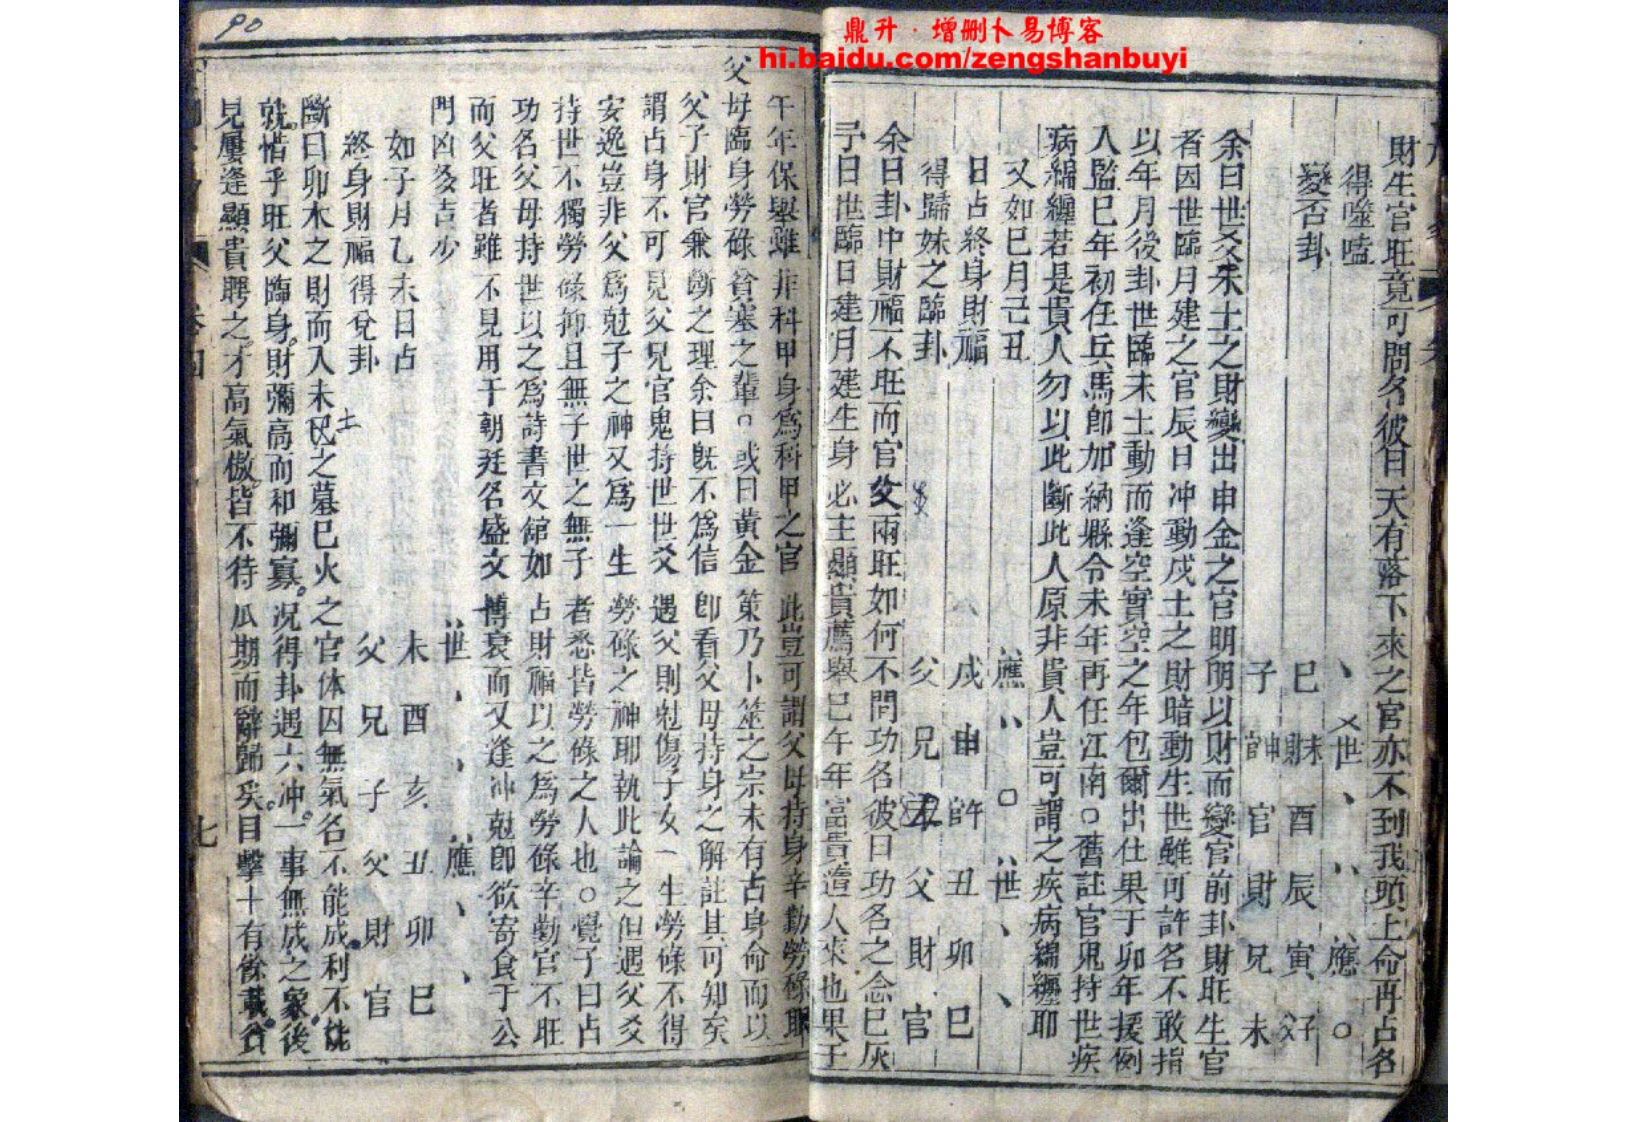 鼎升·增删卜易博客
hi.baidu.com/zengshanbuyi
90
財生官旺竟可問名彼曰天有落下來之官亦不到我頭上命再占名
得噬嗑
變否卦
、乂世、、、、應、、○
巳財未酉辰寅
子官財兄未
余曰世爻未土之財變出申金之官明明以財而變官前卦財旺生官
者因世臨月建之官辰日冲動戌土之財暗動生世雖可許名不敢指
以年月後卦世臨未土動而逢空實空之年包爾出仕果于卯年援例
入監巳年初任兵馬即加納縣令未年再任江南○舊註官鬼持世疾
病綿纏若是貴人勿以此斷此人原非貴人豈可謂之疾病綿纏耶
又如巳月己丑
日占終身財福
得歸妹之臨卦
應、、○世、、、、
戌申丑卯巳
父兄父財官
余曰卦中財福不旺而官父兩旺如何不問功名彼曰功名之念已灰
予曰世臨日建月建生身必主顯貴薦舉巳午年富貴逼人來也果于
午年保舉雖非科甲身爲科甲之官此豈可謂父母持身辛勤勞碌耶
父母臨身勞碌貧塞之輩○或曰黃金策乃卜筮之宗未有占身命而以
父子財官兼斷之理余曰既不爲信即看父母持身之解註其可知矣
謂占身不可見父兄官鬼持世世爻遇父則尅傷子女一生勞碌不得
安逸豈非父爲尅子之神又爲一生勞碌之神耶執此論之但遇父爻
持世不獨勞碌抑且無子世之無子者悉皆勞碌之人也○覺子曰占
功名父母持世以之爲詩書文館如占財福以之爲勞碌辛勤官不旺
而父旺者雖不見用于朝廷名盛文博衰而又逢冲尅即欲寄食于公
門凶多吉少
如子月乙未日占
終身財福得兌卦
世、、應、、
未酉亥丑卯巳
父兄子父財官
斷曰卯木之財而入未土之墓巳火之官休囚無氣名不能成利不能
就惜乎旺父臨身財彌高而和彌寡况得卦遇六冲一事無成之象後
見屢逢顯貴聘之才高氣傲皆不待瓜期而辭歸矣目擊十有餘載貧
卷四
七